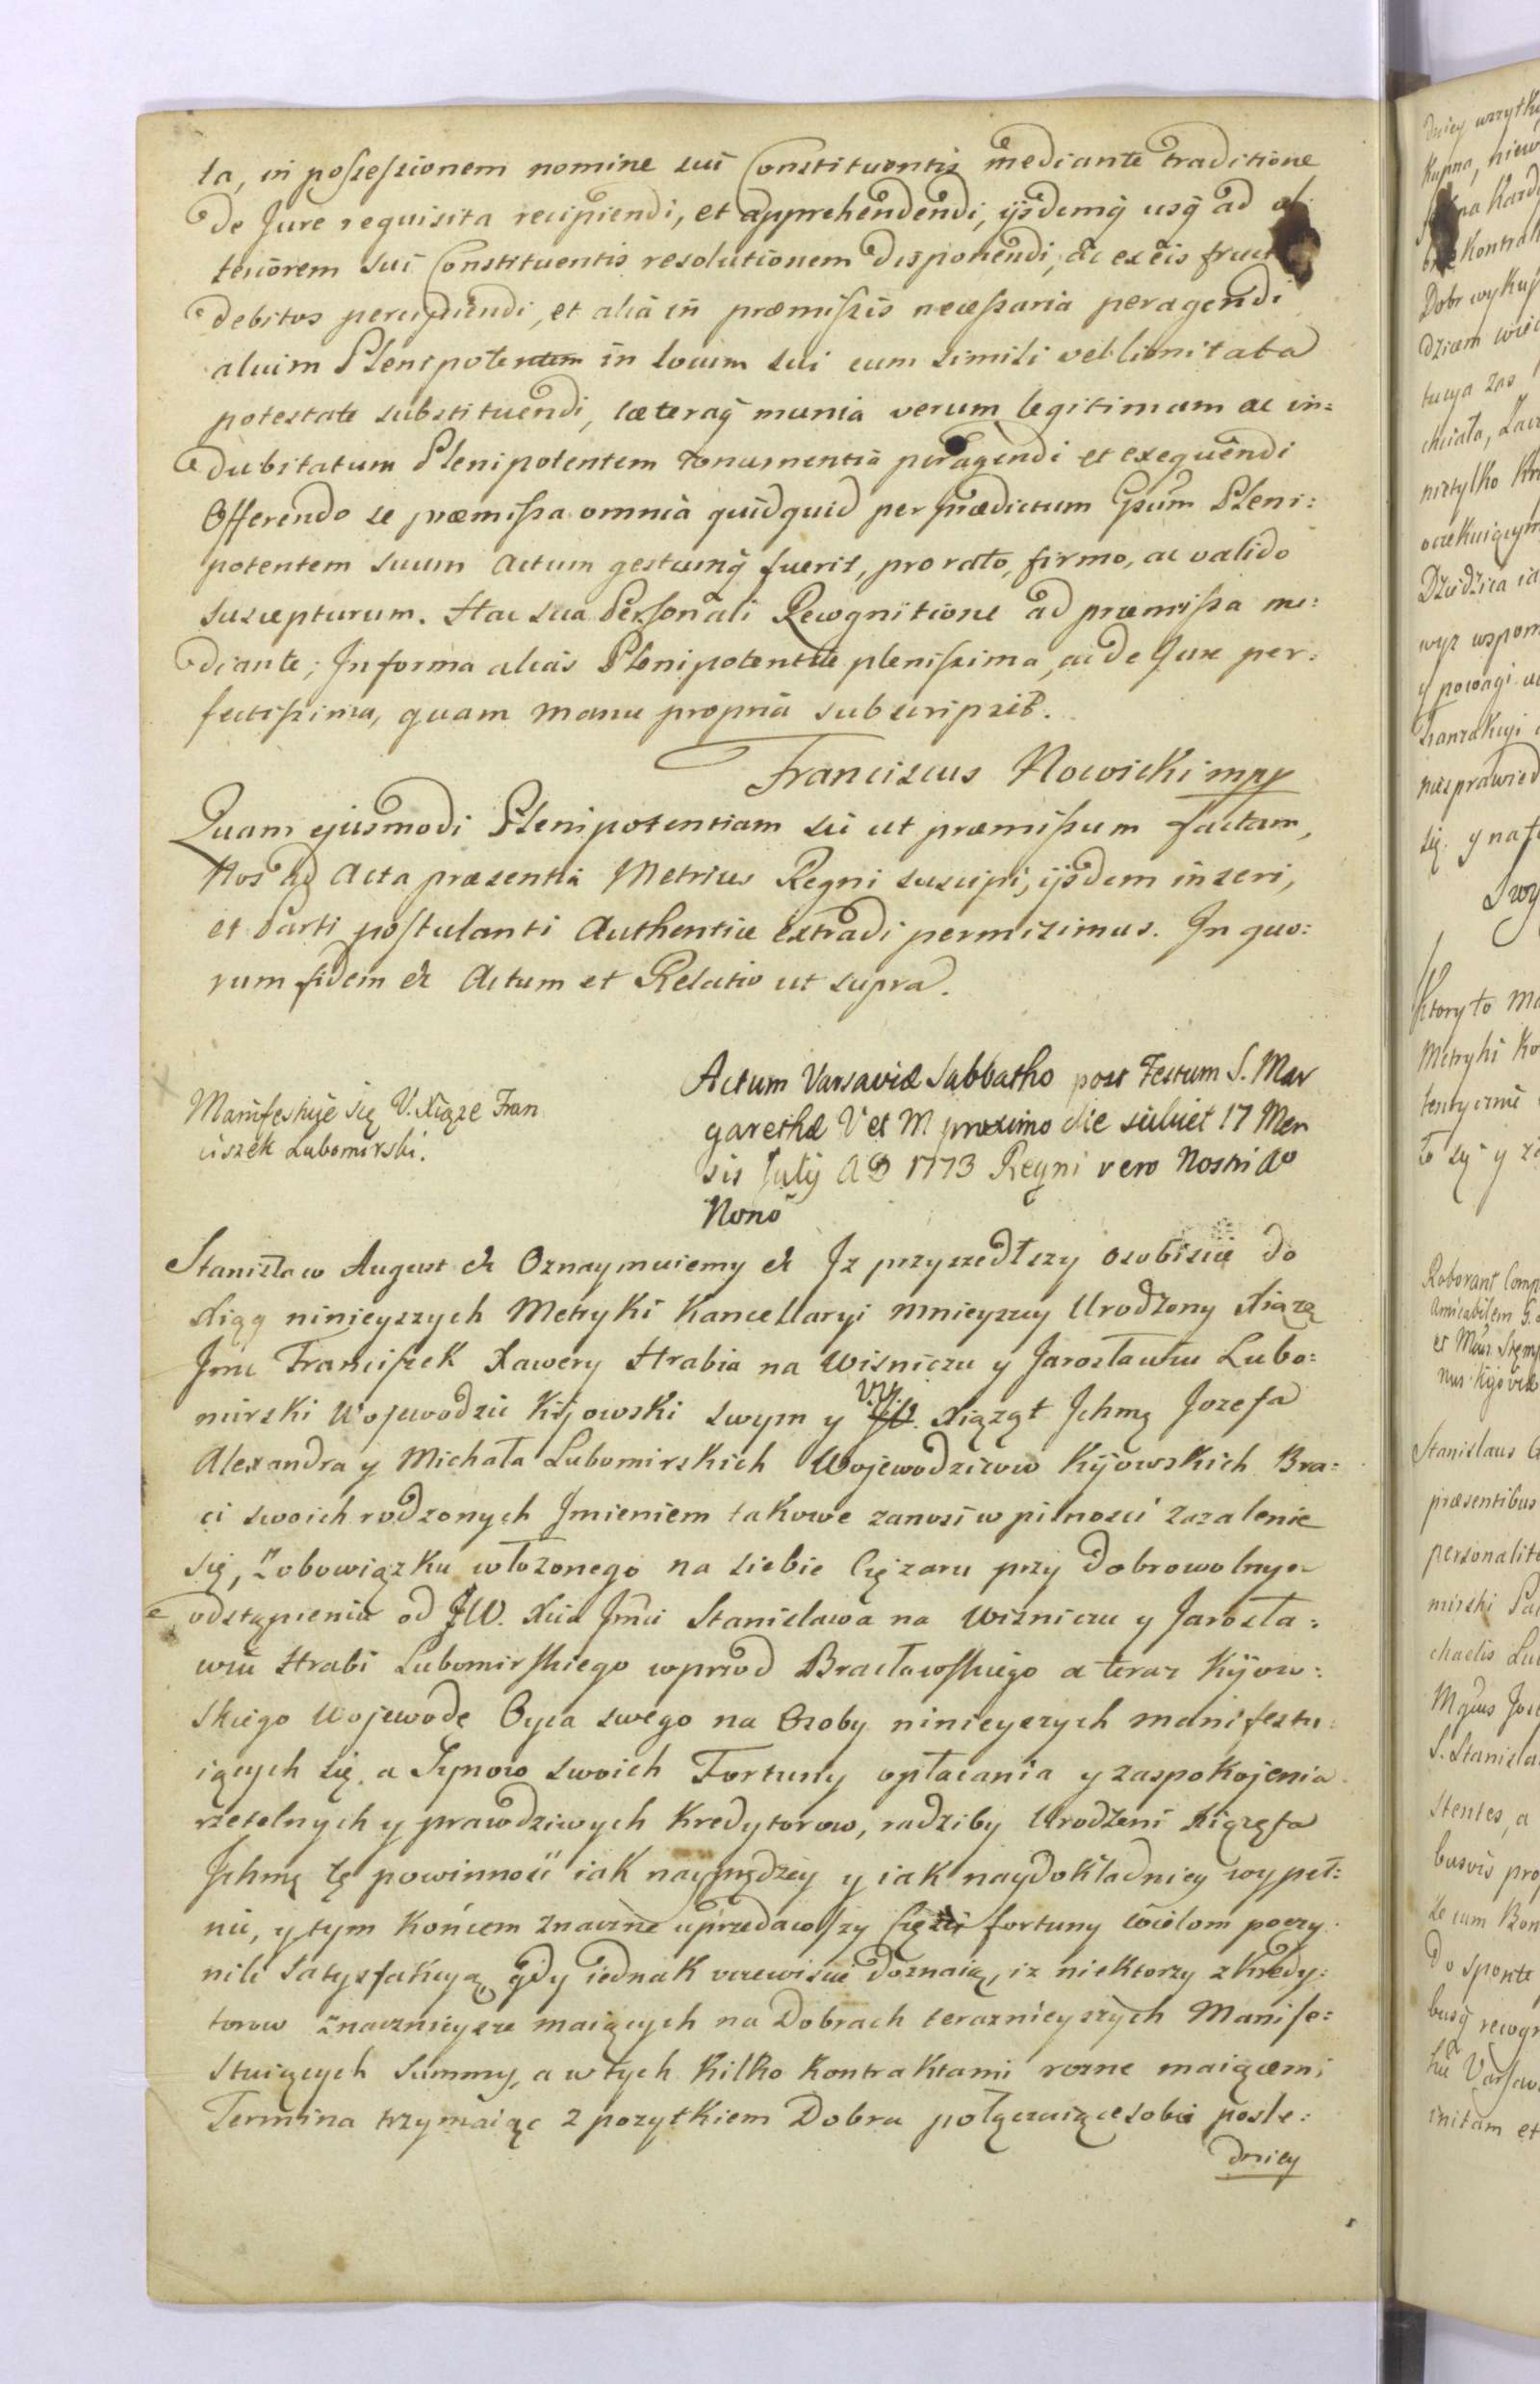 ta, in possessionem nomine sui Constituentis mediante traditione
de Jure requisita recipiendi, et apprehendendi, ijsdemq̃ usq̃ ad ul
teriorem sui Constituentis resolutionem disponendi, ac ex eis fruct
debitos percipiendi, et alia in præmissis necessaria peragendi
alium Plenipotentem in locum sui cum simili vel limitata
potestate substituendi, cæteraq̃ munia verum legitimum ac in=
dubitatum Plenipotentem concernentia peragendi et exequendi
Offerendo se præmissa omnia quidquid per prædictum Gsum Pleni=
potentem suum actum gestumq̃ fuerit, pro rato, firmo, ac valido
suscepturum. Hac sua Personali Recognitione ad præmissa me=
diante; In forma alias Plenipotentiæ plenissima, ac de Jure per=
fectissima, quam manu propria subscripsit.
Franciscus Nowicki mpp
Quam ejusmodi Plenipotentiam sic ut præmissum factam,
Nos ad Acta præsentia Metrices Regni suscipi, ijsdem inseri,
et Parti postulanti Authentice extradi permisimus. In quo=
rum fidem &c Actum et Relatio ut supra.
Manifestuje się U. Xiąze Fran
ciszek Lubomirski.
Actum Varsaviæ Sabbatho post Festum S. Mar
garethæ V et M proximo die scilicet 17 Men
sis July A D 1773 Regni vero Nostri Ao
Nono
Stanisław August &c Oznaymuiemy &c Jz przyszedłszy osobiscie do
Xiąg ninieyszych Metryki Kancellaryi mnieyszey Urodzony Xiąze
Jmć Franciszek Xawery Hrabia na Wisniczu y Jarosławiu Lubo=
mirski Wojewodzic Kijowski swym y UU. Xiąząt Jchmę Jozefa
Alexandra y Michała Lubomirskich Wojewodzicow Kijowskich Bra=
ci swoich rodzonych Jmieniem takowe zanosi w pilnosci zazalenie
się, z obowiązku włożonego na siebie Cięzaru przy dobrowolnym
odstąpieniu od JW. Xcia Jmci Stanisława na Wisniczu y Jarosła=
wiu Hrabi Lubomirskiego wprzod Bracławskiego a teraz Kijow=
skiego Wojewode Oyca swego na Osoby ninieyszych manifestu=
iących się a Synow swoich Fortuny opłacania y zaspokojenia
rzetelnych y prawdziwych Kredytorow, radziby Urodzeni Xiążęta
Jchmę tę powinność iak nayprędzey y iak naydokładniey wypeł=
nić, y tym końcem znaczne uprzedawszy Części fortuny wielom poczy=
nili Satysfakcyą, gdy iednak oczewiscie doznaią, iz niektorzy z Kredy=
torow znacznieysze maiących na Dobrach terazniejszych Manife=
stuiących Summy, a w tych kilko Kontraktami rozne maiącemi
Termina trzymaiąc z pozytkiem Dobra połączaiące sobie posle=
dniey